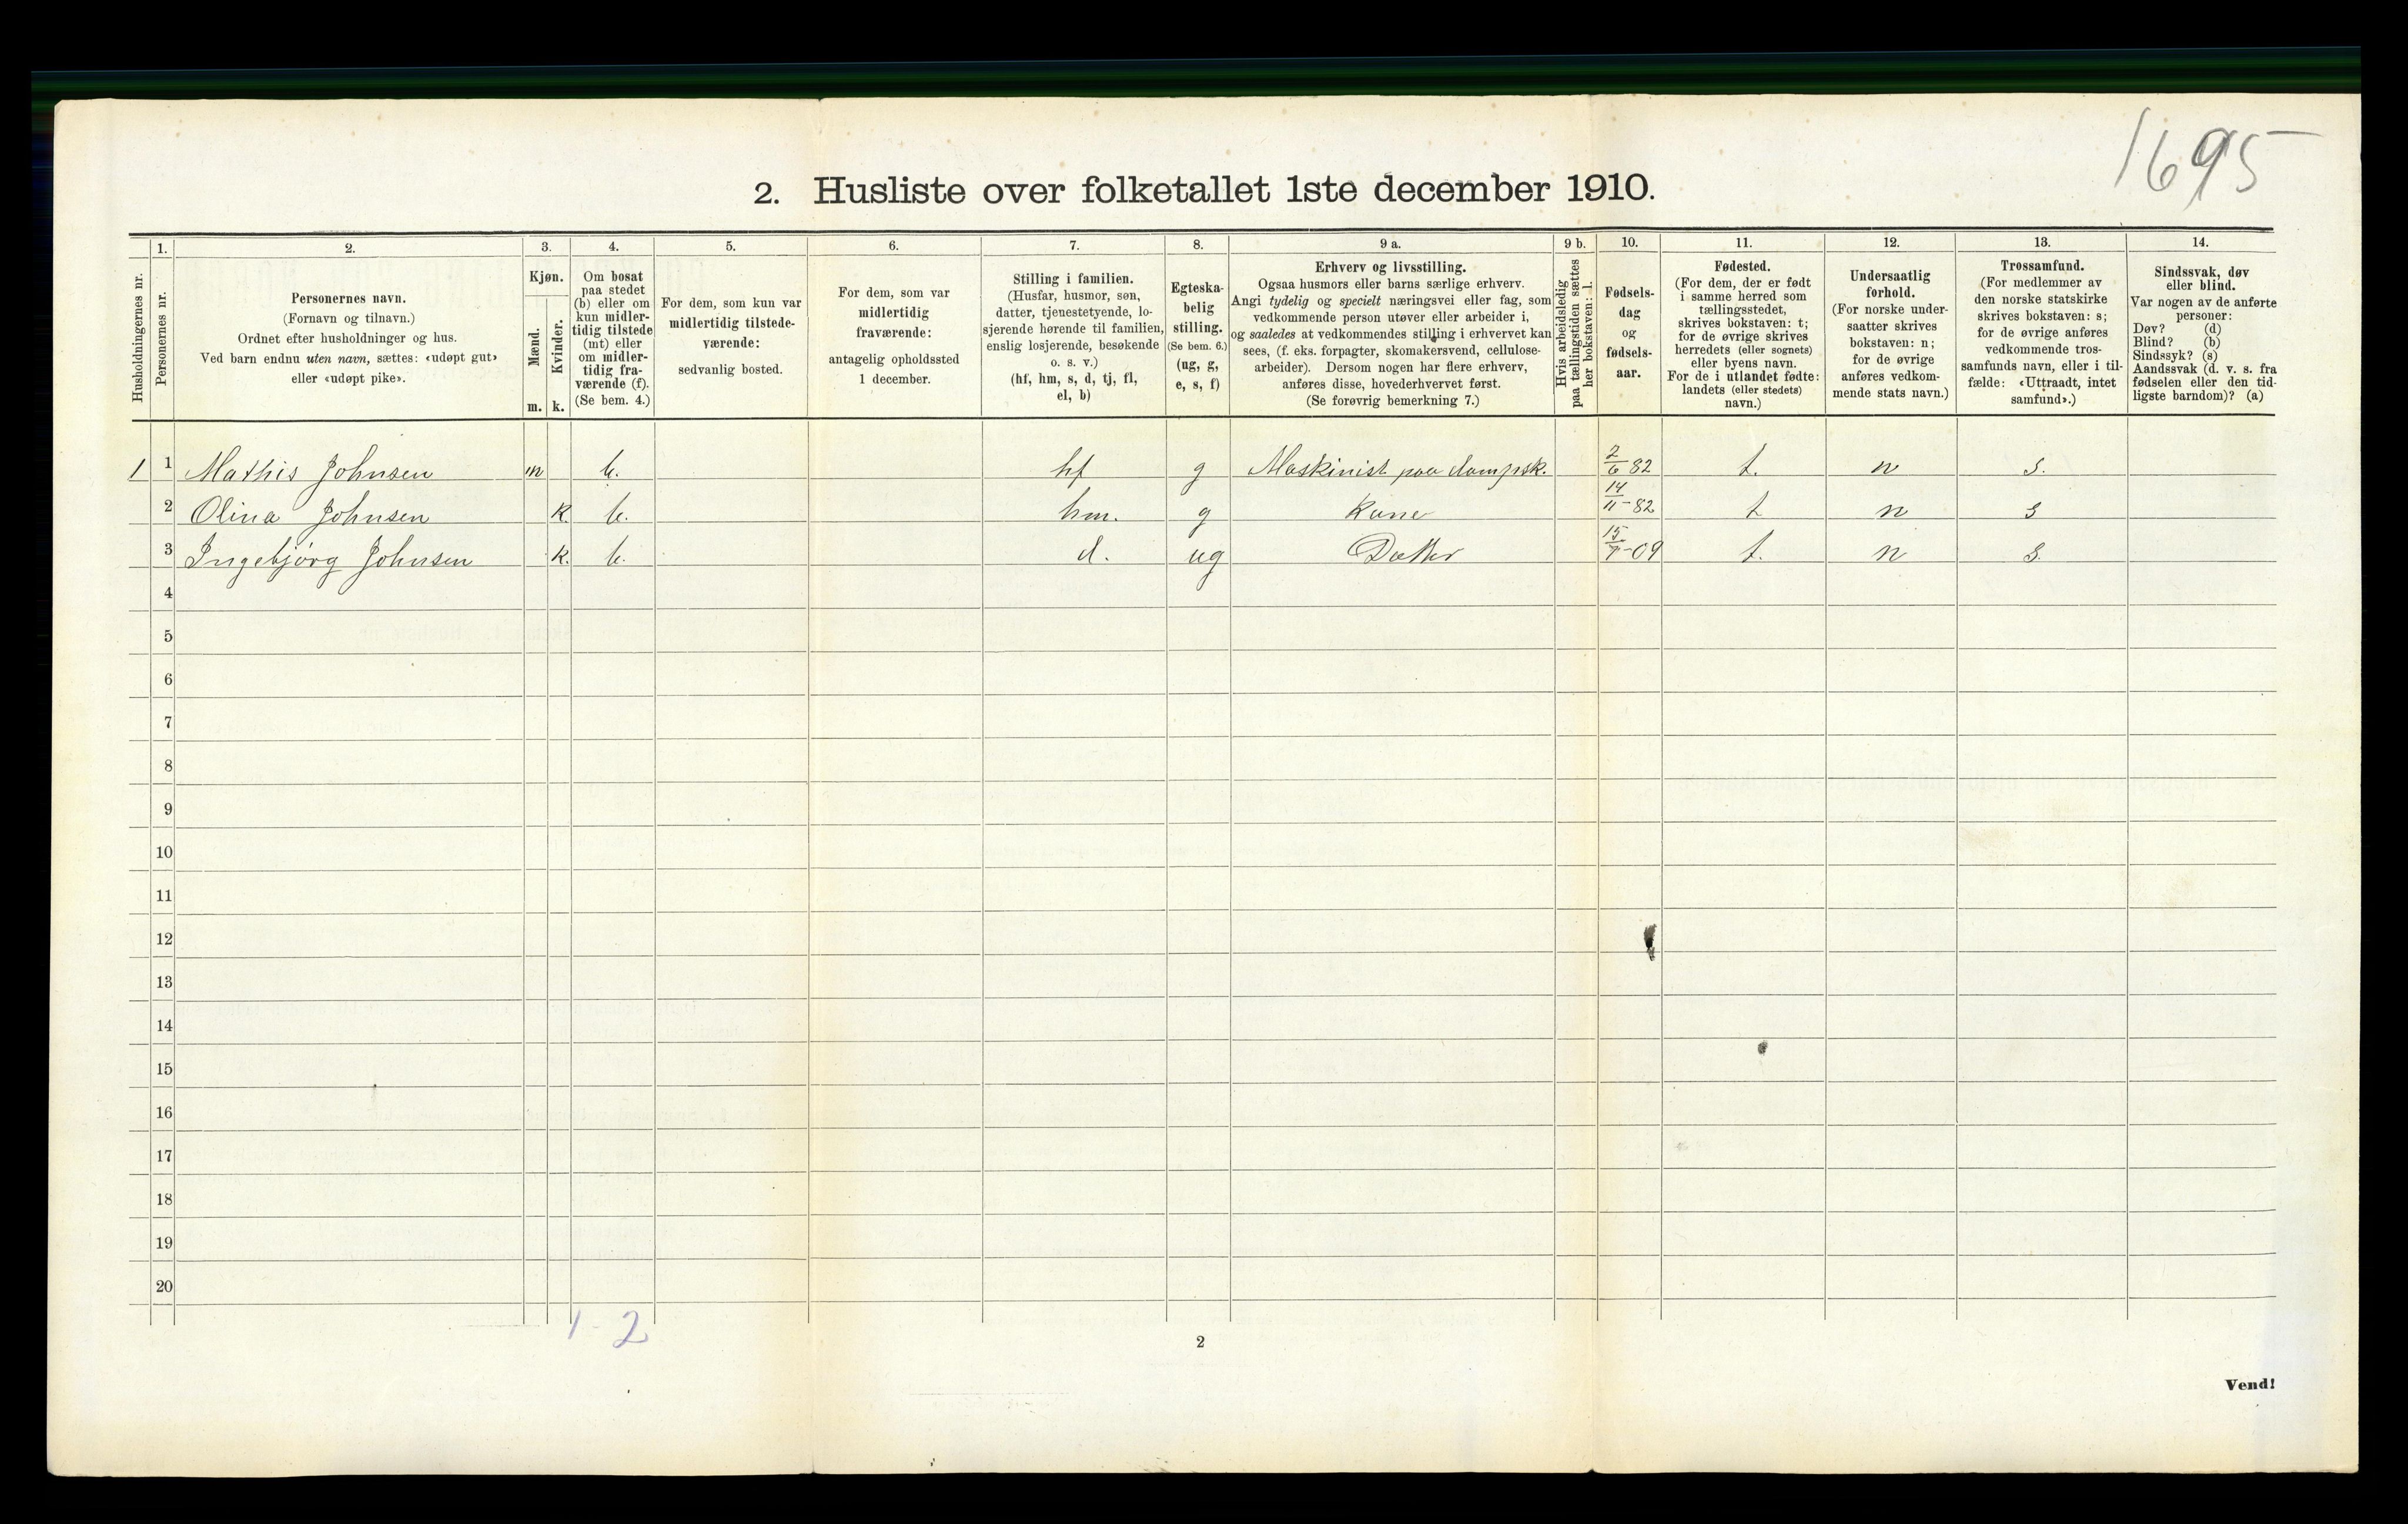 1695
2. Husliste over folketallet 1ste december 1910.
Husholdningernes nr.
1.
Personernes nr.
2.
Personernes navn.
(Fornavn og tilnavn.)
Ordnet efter husholdninger og hus.
Ved barn endnu uten navn, sættes: «udøpt gut»
eller «udøpt pike».
3.
Kjøn.
Mænd.
Kvinder.
m. k.
4.
Om bosat
paa stedet
(b) eller om
kun midler-
tidig tilstede
(mt) eller
om midler-
tidig fra-
værende (f).
(Se bem. 4.)
5.
For dem, som kun var
midlertidig tilstede-
værende:
sedvanlig bosted.
6.
For dem, som var
midlertidig
fraværende:
antagelig opholdssted
1 december.
7.
Stilling i familien.
(Husfar, husmor, søn,
datter, tjenestetyende, lo-
sjerende hørende til familien,
enslig losjerende, besøkende
o. s. v.)
(hf, hm, s, d, tj, fl,
el, b)
8.
Egteska-
belig
stilling.
(Se bem. 6.)
(ug, g,
e, s, f)
9 a.
Erhverv og livsstilling.
Ogsaa husmors eller barns særlige erhverv.
Angi tydelig og specielt næringsvei eller fag, som
vedkommende person utøver eller arbeider i,
og saaledes at vedkommendes stilling i erhvervet kan
sees, (f. eks. forpagter, skomakersvend, cellulose-
arbeider). Dersom nogen har flere erhverv,
anføres disse, hovederhvervet først.
(Se forøvrig bemerkning 7.)
9 b.
Hvis arbeidsledig
paa tællingstiden sættes
her bokstaven: l.
10.
Fødsels-
dag
og
fødsels-
aar.
11.
Fødested.
(For dem, der er født
i samme herred som
tællingsstedet,
skrives bokstaven: t;
for de øvrige skrives
herredets (eller sognets)
eller byens navn.
For de i utlandet fødte:
landets (eller stedets)
navn.)
12.
Undersaatlig
forhold.
(For norske under-
saatter skrives
bokstaven: n;
for de øvrige
anføres vedkom-
mende stats navn.)
13.
Trossamfund.
(For medlemmer av
den norske statskirke
skrives bokstaven: s;
for de øvrige anføres
vedkommende tros-
samfunds navn, eller i til-
fælde: «Uttraadt, intet
samfund».)
14.
Sindssvak, døv
eller blind.
Var nogen av de anførte
personer:
Døv? (d)
Blind? (b)
Sindssyk? (s)
Aandssvak (d. v. s. fra
fødselen eller den tid-
ligste barndom)? (a)
1 1 Mathis Johnsen m b. hf g Maskinist paa dampsk. 2/6 82 t. n s.
2 Olina Johnsen k. b. hm. g Kone 14/11-82 t n s
3 Ingebjörg Johnsen k. b. d. ug Datter 15/7-09 t. n s.
4
5
6
7
8
9
10
11
12
13
14
15
16
17
18
19
20
1-2
2
Vend!